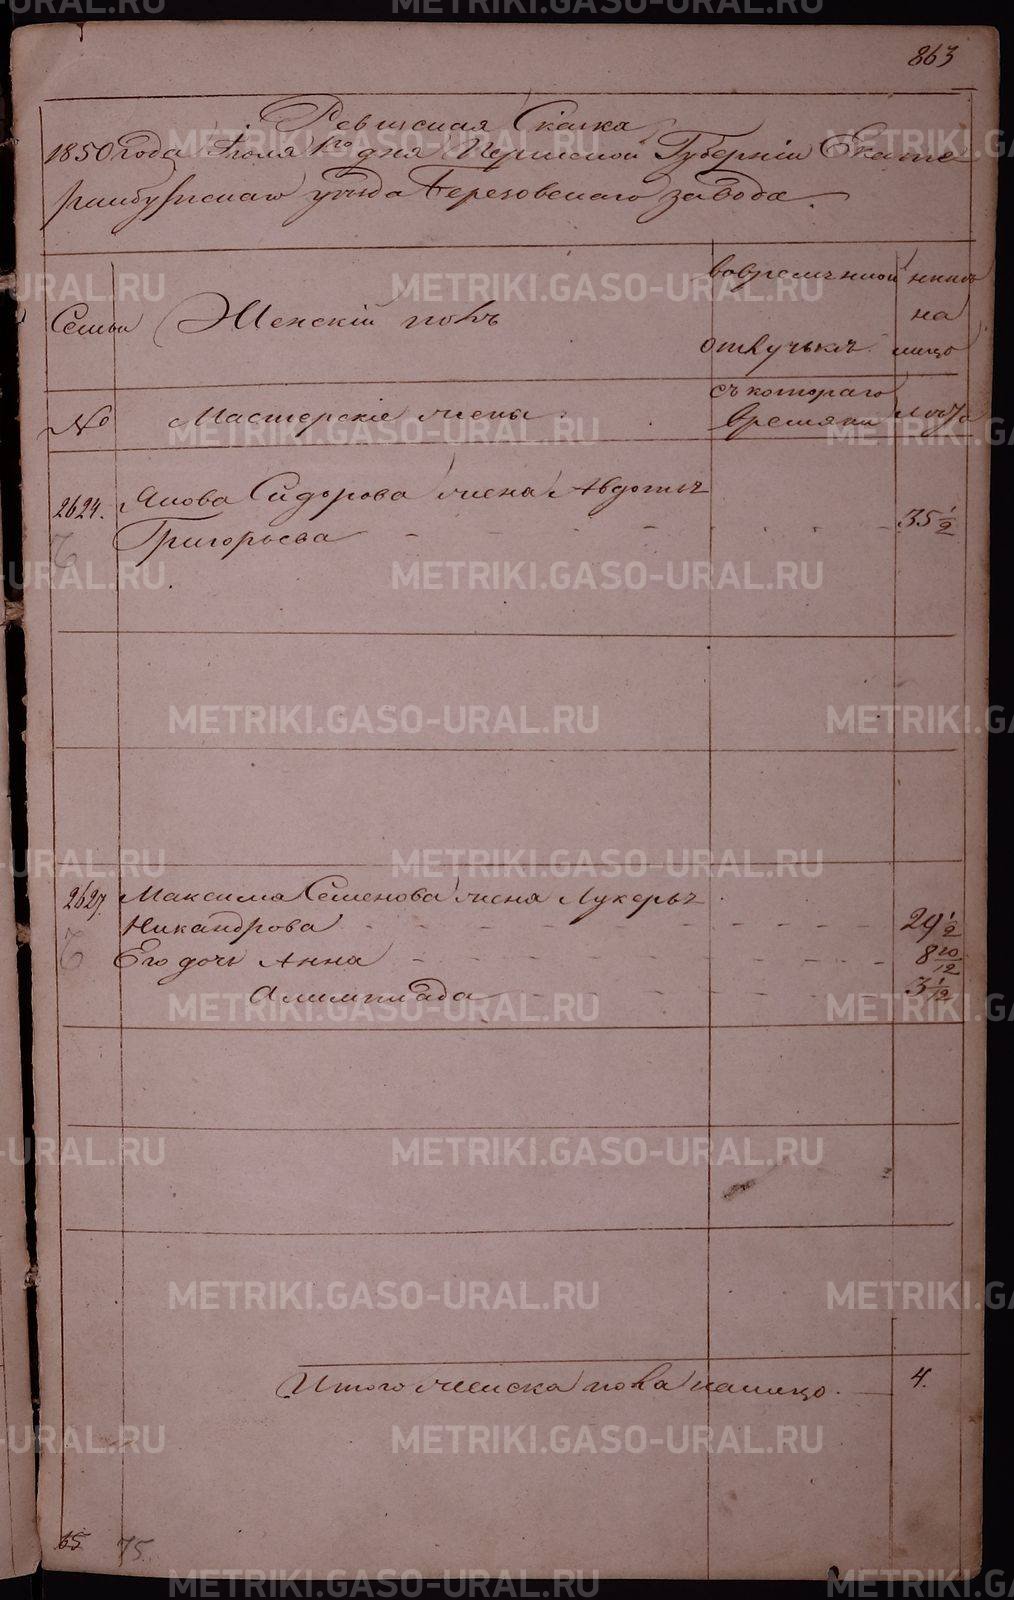 863
Ревизская Сказка
1850 года Июля 1го дня Пермской Губерніи Екате
ринбургскаго уѣзда Березовскаго завода.
Семьи
Женскій полъ
вовременной
отлучькѣ
нынѣ
на
лицо
№
Мастерскіе жены.
съ котораго
времяни
лѣта
2624. Якова Сидорова жена Авдотья
Григорьева 35 1/2
2627. Максима Семенова жена Лукерья
Никандрова 29 1/2
Его дочь Анна 8 10/12
Алимпиада 3 1/12
Итого женска пола налицо. 4.
65 75.
METRIKI.GASO-URAL.RU